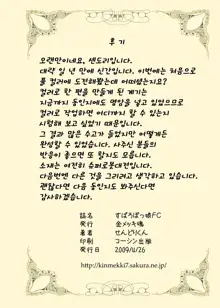 후기
오랜만이네요, 센도리입니다.
대략 일 년 만에 신간입니다. 이번에는 처음으로
풀 컬러에 도전해봤는데 어떠셨는지요?
컬러로 한 편을 만들게 된 계기는
지금까지 동인지에도 영향을 넣고 있었으므로
컬러로 작업하면 어디까지 할 수 있는지
시험해 보고 싶었기 때문입니다.
그 결과 많은 수고가 들었지만 어떻게든
완성할 수 있었습니다. 사주신 분들의
반응이 좋으면 또 도전하고 싶습니다.
소재는 여전히 슈퍼로봇대전입니다.
다음번엔 다른 것을 그리려고 생각하고 있습니다.
괜찮다면 다음 동인지도 봐주신다면
감사하겠습니다.
誌名 すぱろぼっ娘FC
発行 金メッキ鳩
著者 せんどりくん
印刷 コーシン出版
発行 2009/4/26
http://kinmekki7.sakura.ne.jp/